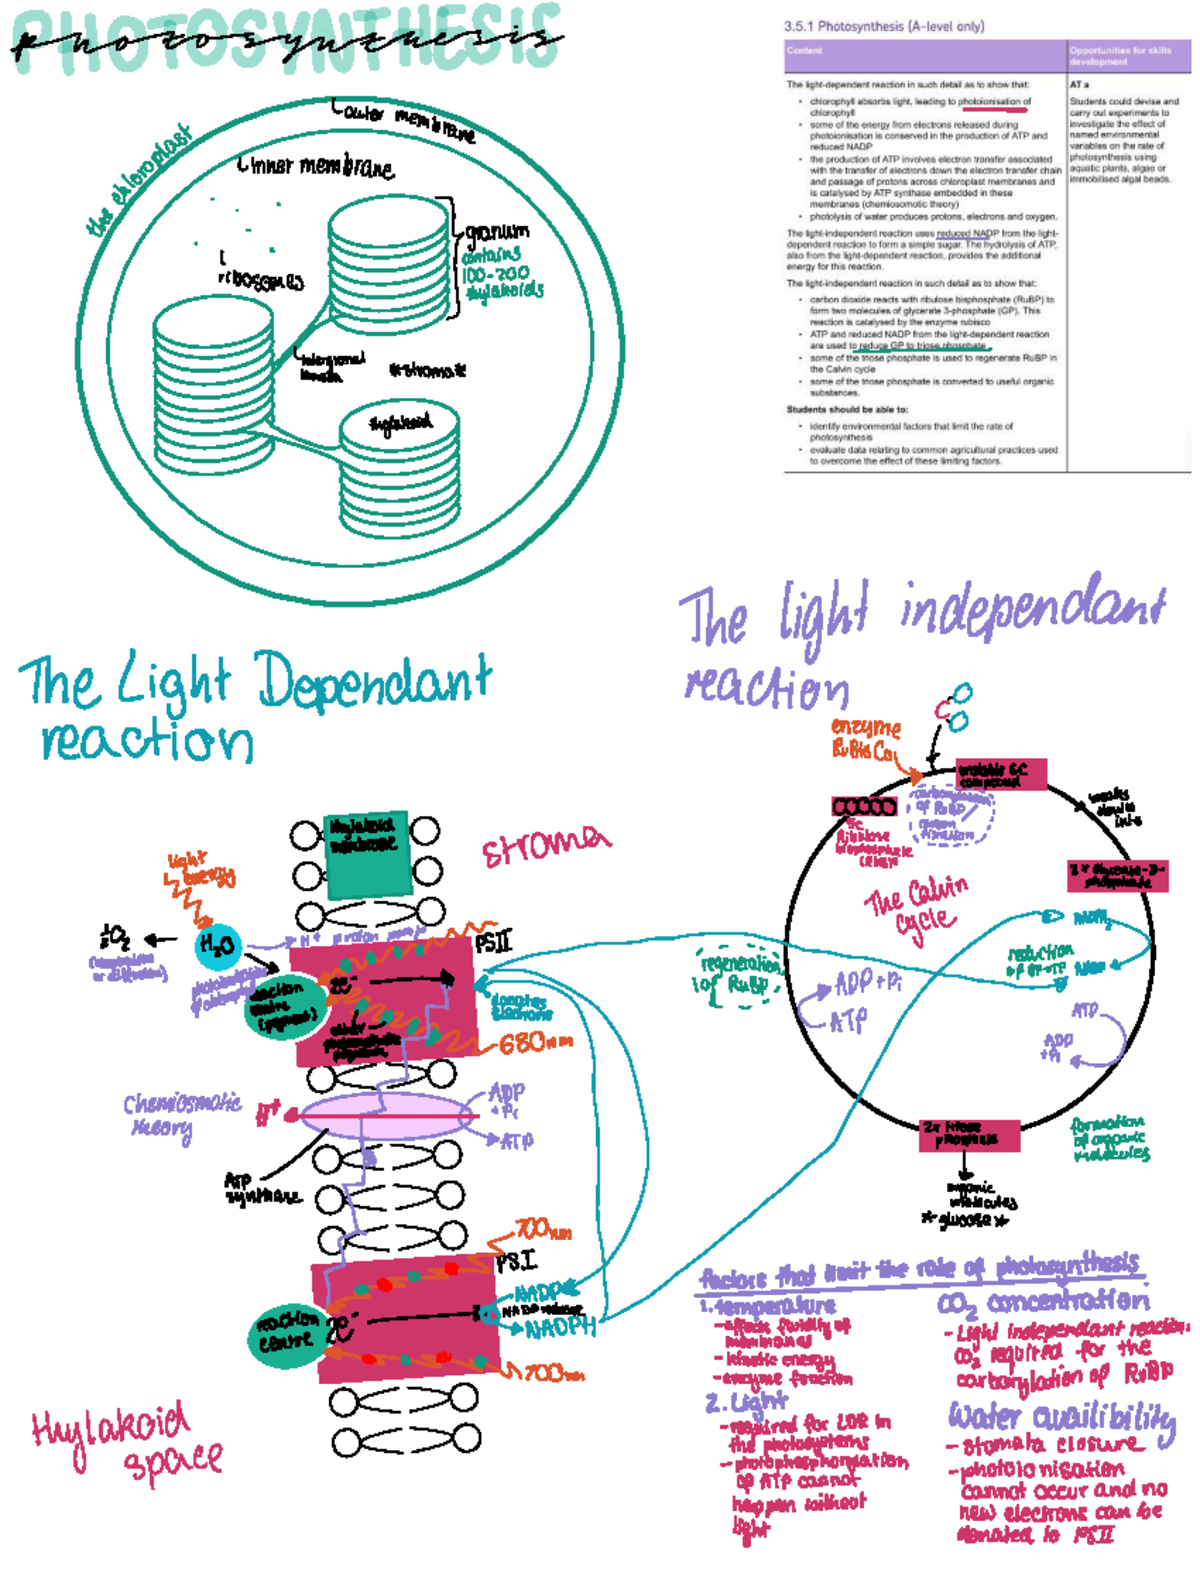 PHOTOSYNTHESIS
photosynthesis
3.5.1 Photosynthesis (A-level only)
Content
Opportunities for skills
development
The light-dependent reaction in such detail as to show that:
• chlorophyll absorbs light, leading to photoionisation of
chlorophyll
• some of the energy from electrons released during
photoionisation is conserved in the production of ATP and
reduced NADP
• the production of ATP involves electron transfer associated
with the transfer of electrons down the electron transfer chain
and passage of protons across chloroplast membranes and
is catalysed by ATP synthase embedded in these
membranes (chemiosmotic theory)
• photolysis of water produces protons, electrons and oxygen.
The light-independent reaction uses reduced NADP from the light-
dependent reaction to form a simple sugar. The hydrolysis of ATP,
also from the light-dependent reaction, provides the additional
energy for this reaction.
The light-independent reaction in such detail as to show that:
• carbon dioxide reacts with ribulose bisphosphate (RuBP) to
form two molecules of glycerate 3-phosphate (GP). This
reaction is catalysed by the enzyme rubisco
• ATP and reduced NADP from the light-dependent reaction
are used to reduce GP to triose phosphate
• some of the triose phosphate is used to regenerate RuBP in
the Calvin cycle
• some of the triose phosphate is converted to useful organic
substances.
Students should be able to:
• identify environmental factors that limit the rate of
photosynthesis
• evaluate data relating to common agricultural practices used
to overcome the effect of these limiting factors.
AT a
Students could devise and
carry out experiments to
investigate the effect of
named environmental
variables on the rate of
photosynthesis using
aquatic plants, algae or
immobilised algal beads.
the chloroplast
outer membrane
inner membrane
ribosomes
granum
contains
100-200
thylakoids
intergranal
*stroma*
thylakoid
The Light Dependant
reaction
thylakoid
membrane
stroma
light
energy
½O₂
H₂O
H⁺ proton pump
PSII
reaction
centre
(pigment)
2e⁻
other
donates
electrons
680nm
Chemiosmotic
theory
H⁺
ADP
+ Pi
ATP
ATP
synthase
700nm
PSI
NADP
NADPH
reaction
centre
2e⁻
700nm
Thylakoid
space
The light independant
reaction
C
enzyme
RuBisCo
unstable 6C
compound
carboxylation
of RuBP
5C
Ribulose
breaks
down
into
2x Glycerate-3-
phosphate
The Calvin
Cycle
regeneration
of RuBP
ADP + Pi
ATP
reduction
of GP → TP
NADPH
NADP
ATP
ADP
+Pi
2x triose
phosphate
formation
of organic
molecules
organic
molecules
*glucose*
factors that limit the rate of photosynthesis
1. temperature
- affects fluidity of
membranes
- kinetic energy
- enzyme function
2. Light
- required for LDR in
the photosystems
- photophosphorylation
of ATP cannot
happen without
light
CO₂ concentration
- Light independant reaction:
CO₂ required for the
carboxylation of RuBP
Water availibility
- stomata closure
- photoionisation
cannot occur and no
new electrons can be
donated to PSII